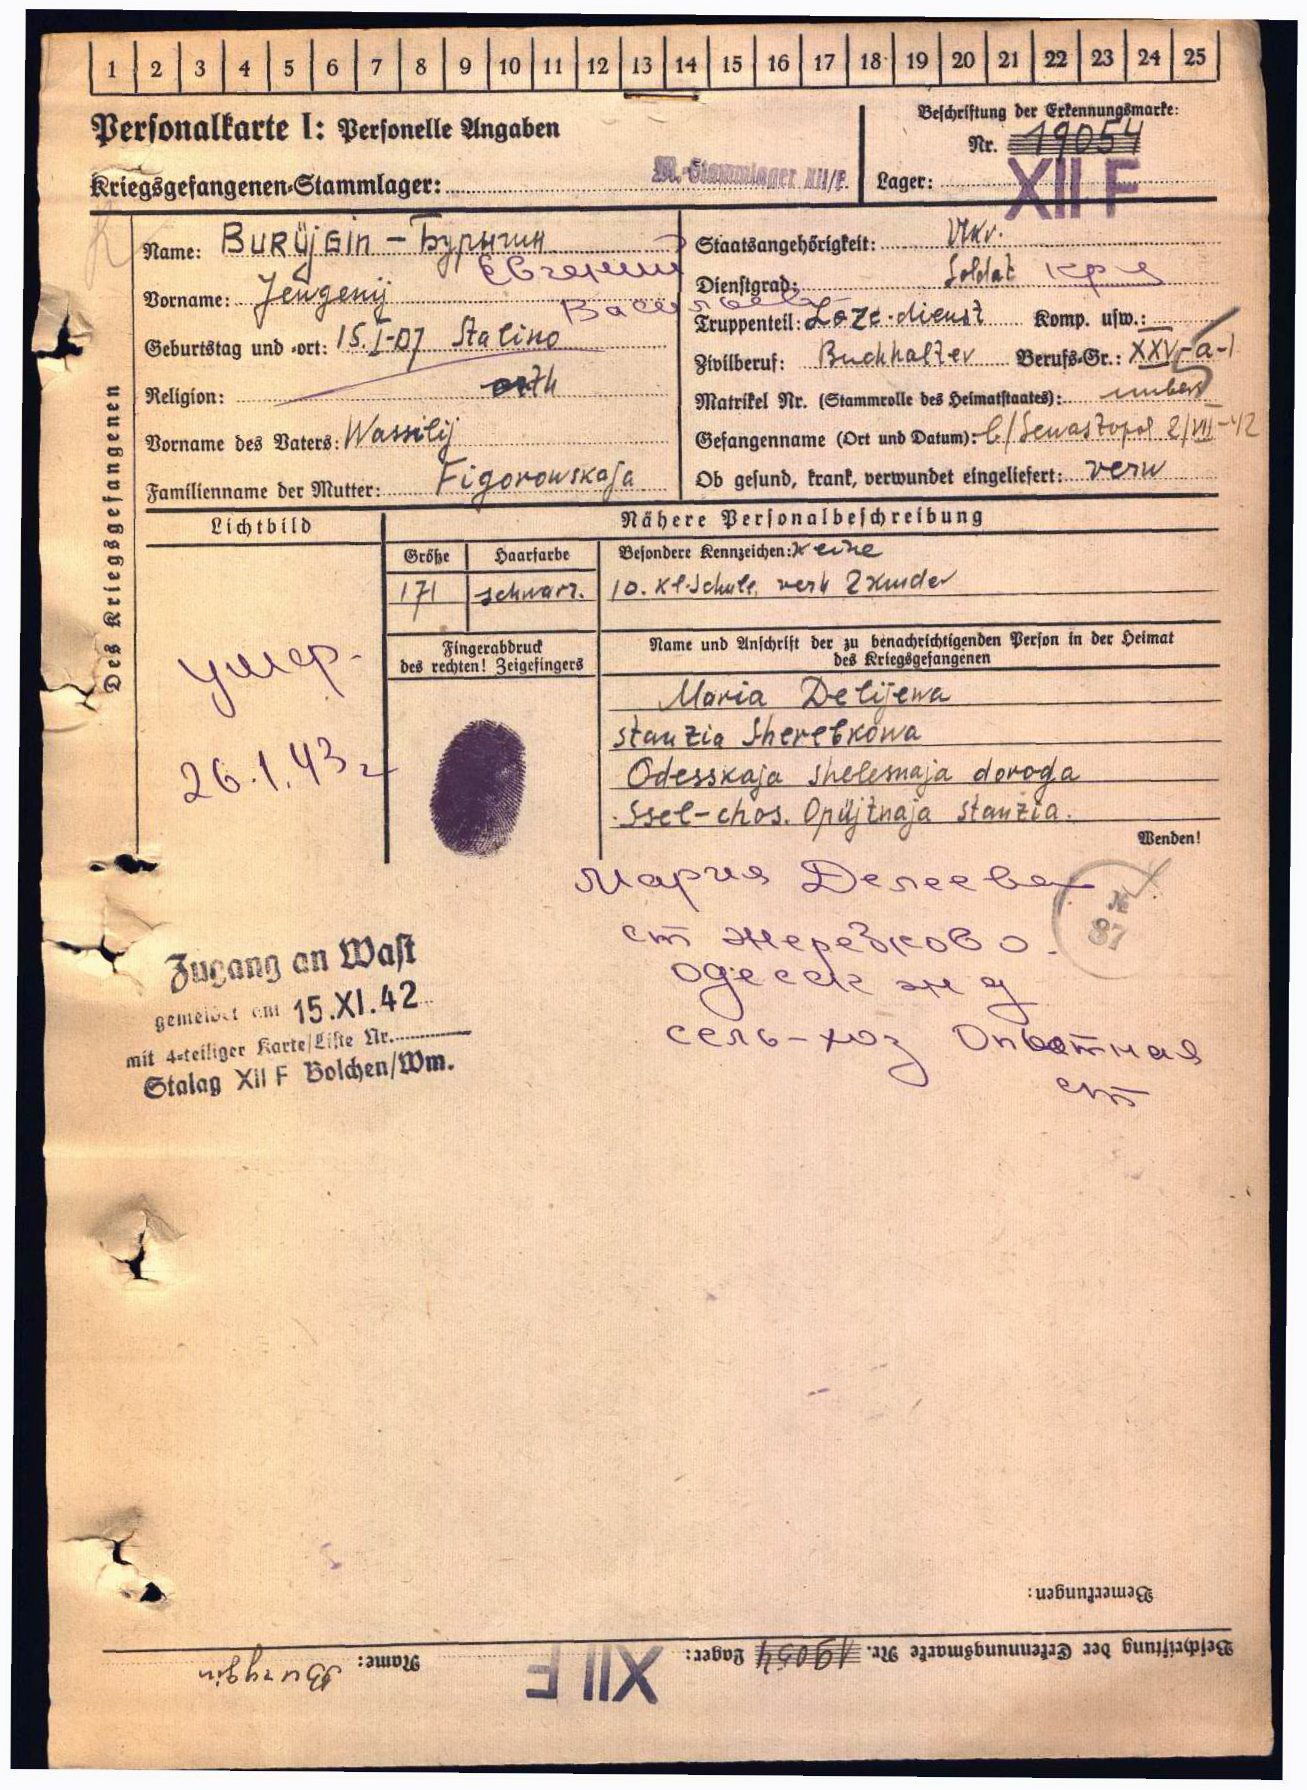 1 2 3 4 5 6 7 8 9 10 11 12 13 14 15 16 17 18 19 20 21 22 23 24 25
Personalkarte I: Personelle Angaben
Kriegsgefangenen-Stammlager: M.-Stammlager XII/F.
Beschriftung der Erkennungsmarke:
Nr. 19054
Lager: XII F
Des Kriegsgefangenen
Name: Burüjgin – Бурыгин
Евгений
Vorname: Jewgenij
Geburtstag und -ort: 15.I-07 Stalino
Religion: orth
Vorname des Vaters: Wassilij
Familienname der Mutter: Figorowskaja
Staatsangehörigkeit: Ukr.
Dienstgrad: Soldat кр
Truppenteil: Laze-dienst Komp. usw.:
Zivilberuf: Buchhalter Berufs-Gr.: XXV-a-1
Matrikel Nr. (Stammrolle des Heimatstaates): unbek
Gefangenname (Ort und Datum): b/Sewastopol 2/VII-42
Ob gesund, krank, verwundet eingeliefert: verw
Lichtbild
Nähere Personalbeschreibung
Größe Haarfarbe Besondere Kennzeichen: keine
171 schwarz. 10. Kl. Schule, verh 2 Kinder
Fingerabdruck
des rechten! Zeigefingers
Name und Anschrift der zu benachrichtigenden Person in der Heimat
des Kriegsgefangenen
Maria Delijewa
stanzia Sherebkowa
Odesskaja shelesnaja doroga
Ssel-chos. Opüjtnaja stanzia.
Wenden!
умер-
26.1.43 г
Мария Делеева
ст Жеребково.
Одесск ж д
сель-хоз Опытная
ст
№
87
Zugang an Wast
gemeldet am 15.XI.42
mit 4-teiliger Karte/Liste Nr.
Stalag XII F Bolchen/Wm.
Bemerkungen:
Beschriftung der Erkennungsmarke Nr. 19054 Lager: XII F Name: Burygin